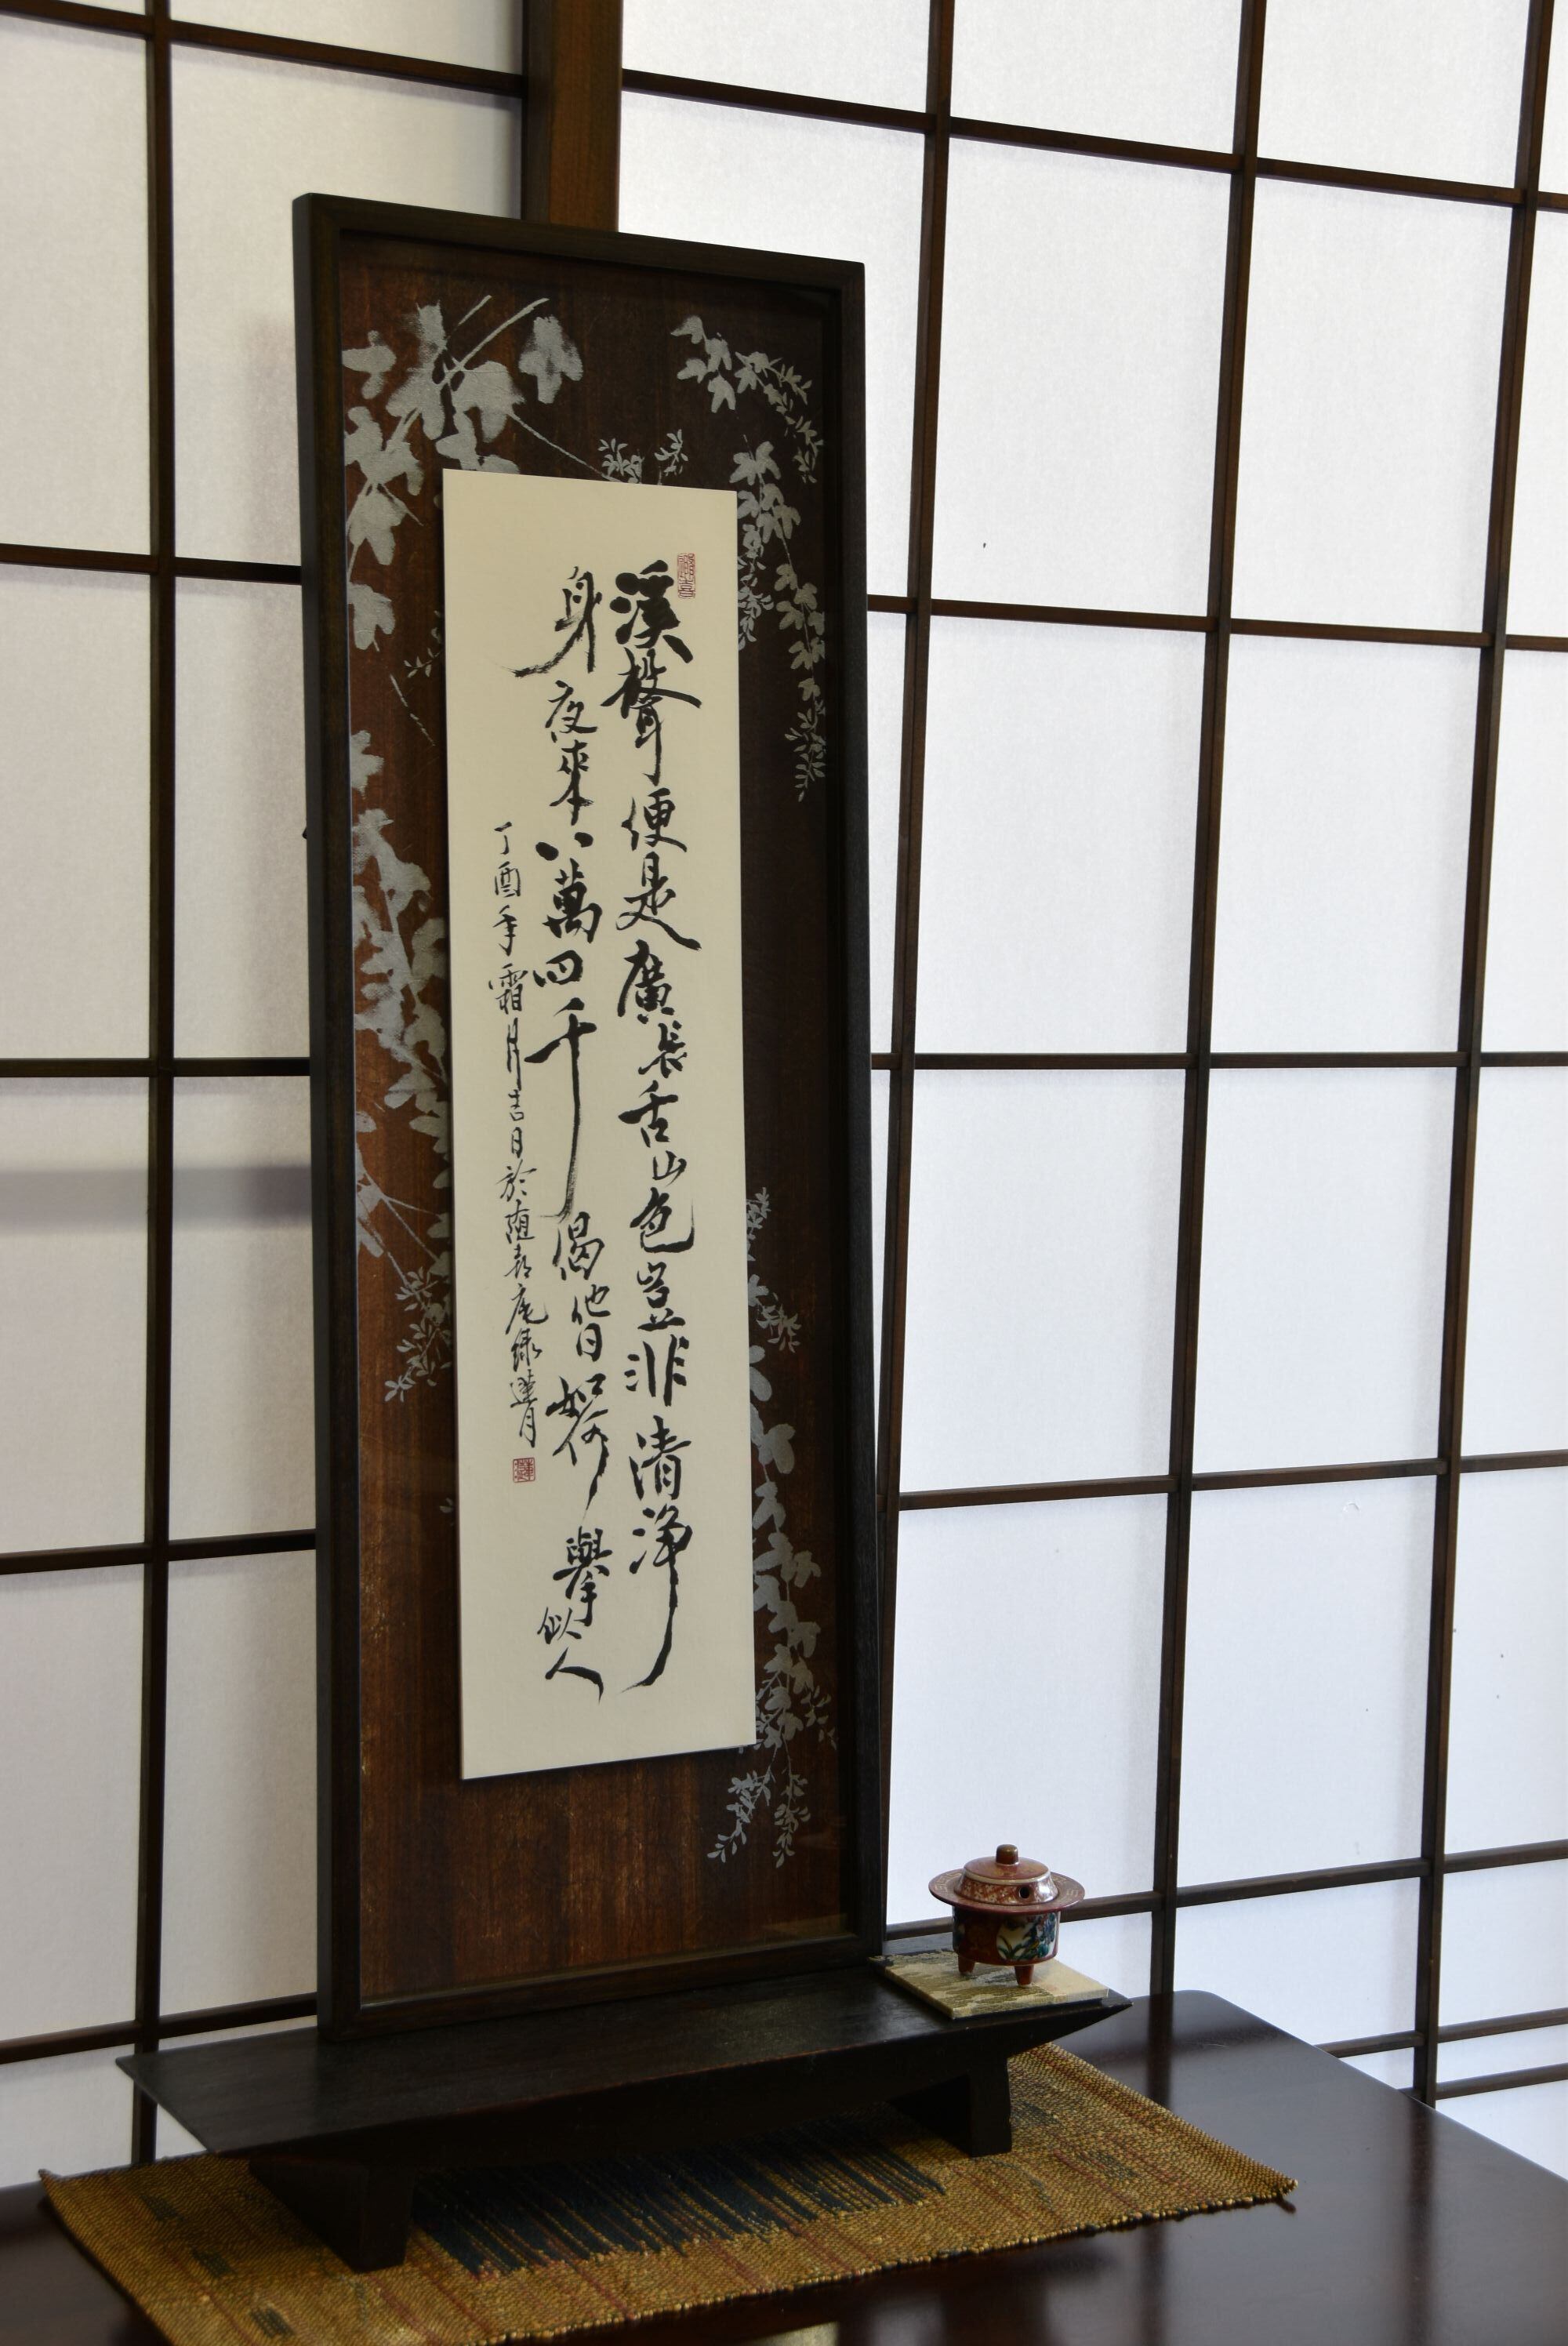 溪聲便是廣長舌山色豈非清淨
身夜來八萬四千偈他日如何舉似人
丁酉年霜月吉日於随喜庵緑蓮月